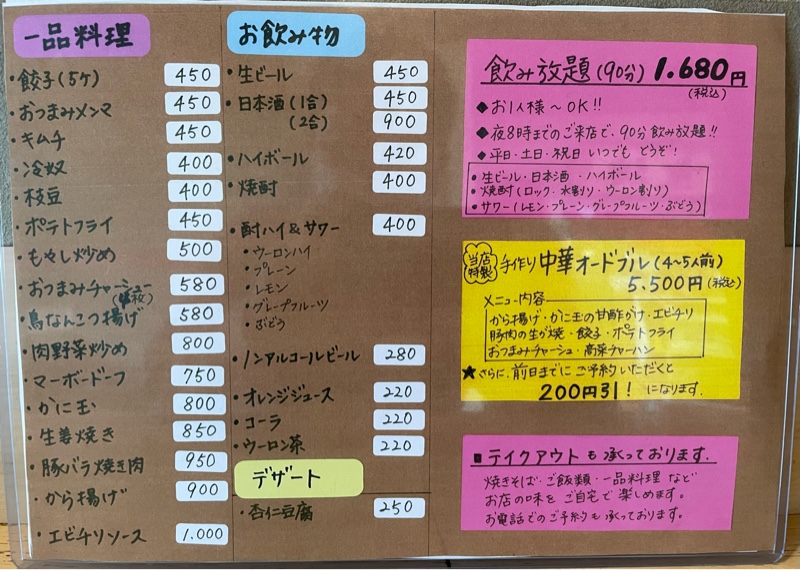 一品料理
・餃子(5ケ) 450
・おつまみメンマ 450
・キムチ 450
・冷奴 400
・枝豆 400
・ポテトフライ 450
・もやし炒め 500
・おつまみチャーシュー 580
・鳥なんこつ揚げ 580
・肉野菜炒め 800
・マーボードーフ 750
・かに玉 800
・生姜焼き 850
・豚バラ焼き肉 950
・から揚げ 900
・エビチリソース 1.000
お飲み物
・生ビール 450
・日本酒(1合) 450
(2合) 900
・ハイボール 420
・焼酎 400
・酎ハイ&サワー 400
・ウーロンハイ
・プレーン
・レモン
・グレープフルーツ
・ぶどう
・ノンアルコールビール 280
・オレンジジュース 220
・コーラ 220
・ウーロン茶 220
デザート
・杏仁豆腐 250
飲み放題(90分) 1.680円
(税込)
◆お1人様~OK!!
◆夜8時までのご来店で、90分飲み放題!!
◆平日・土日・祝日 いつでも どうぞ!
・生ビール・日本酒・ハイボール
・焼酎(ロック・水割り・ウーロン割り)
・サワー(レモン・プレーン・グレープフルーツ・ぶどう)
当店特製 手作り 中華オードブル(4~5人前)
5.500円(税込)
メニュー内容
から揚げ・かに玉の甘酢がけ・エビチリ
豚肉の生が焼・餃子・ポテトフライ
おつまみチャーシュー・高菜チャーハン
★さらに、前日までにご予約いただくと
200円引! になります。
■テイクアウトも承っております。
焼きそば・ご飯類・一品料理 など
お店の味を ご自宅で 楽しめます。
お電話でのご予約も承っております。